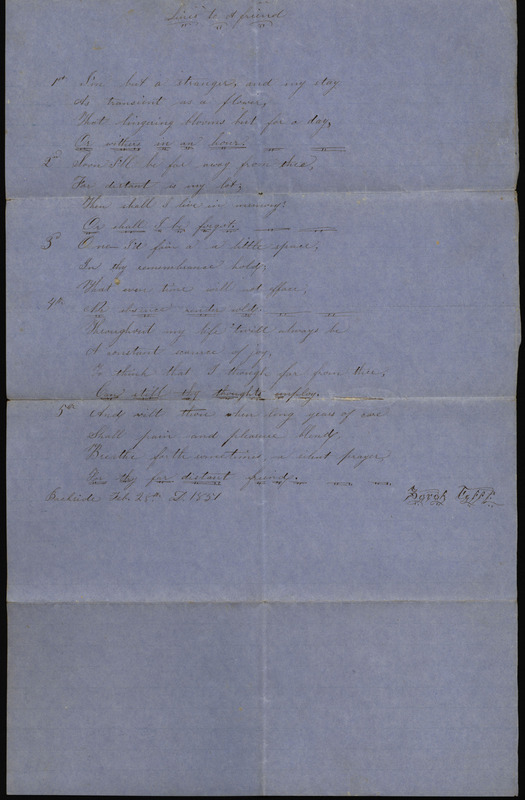 Lines to A friend
1st I'm but a stranger, and my stay
As transient as a flower,
That lingering blooms but for a day,
Or withers in an hour.
2d Soon I'll be far away from thee,
Far distant is my lot;
Then shall I live in memory,
Or shall I be forgot.
3d O may I find a little space,
In thy remembrance hold;
That even time will not efface,
Or absence render cold.
4th Throughout my life 'twill always be
A constant source of joy,
To think that I though far from thee,
Can still thy thoughts employ.
5th And wilt thou when long years of
Shall pain and pleasure blend,
Breathe forth sometimes a silent prayer,
For thy far distant friend.
Feb. 28th 1851